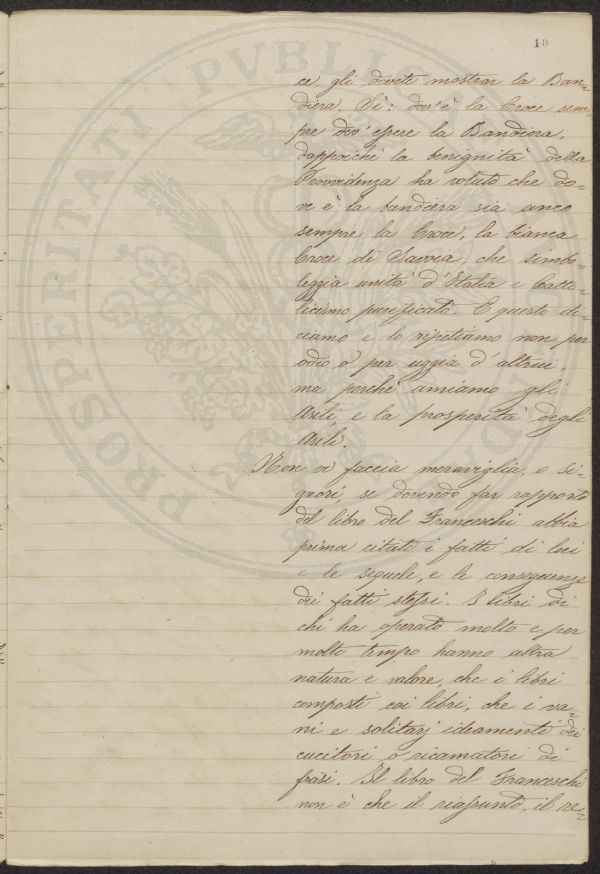 10
ce, gli dovete mostrar la Ban=
diera. Sì: dov'è la Croce sem=
pre dov'essere la Bandiera,
dappoichè la benignità della
Provvidenza ha voluto che do=
ve è la bandiera sia anco
sempre la Croce, la bianca
Croce di Savoia, che simbo=
leggia unità d'Italia e Catto=
licismo purificato. E questo di=
ciamo e lo ripetiamo non per
odio o per uggia d'altrui,
ma perchè amiamo gli
Asili, e la prosperità degli
Asili.
Non vi faccia meraviglia, o si=
gnori, se dovendo far rapporto
del libro del Franceschi abbia
prima citati i fatti di lui
e le seguele, e le conseguenze
dei fatti stessi. I libri di
chi ha operato molto e per
molto tempo hanno altra
natura e valore, che i libri
composti coi libri, che i va=
ni e solitarj ideamenti dei
cucitori o ricamatori di
frasi. Il libro del Franceschi
non è che il riassunto, il re=
PROSPERITATI PVBLICAE